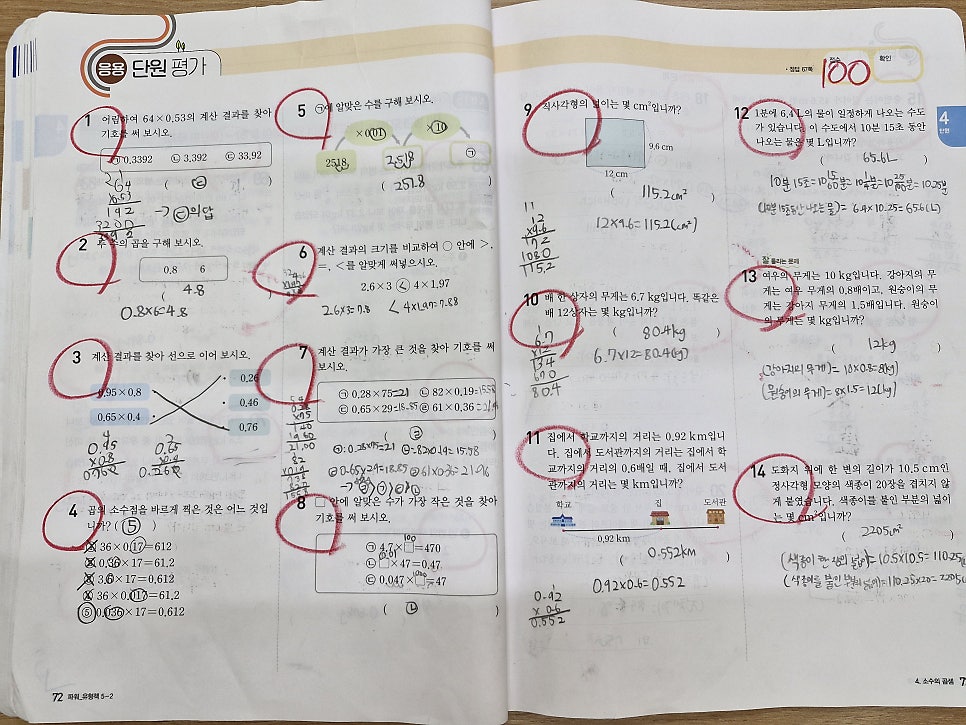 응용 단원 평가
1 어림하여 64×0.53의 계산 결과를 찾아
기호를 써 보시오.
㉠ 0.3392 ㉡ 3.392 ㉢ 33.92
( ㉢ )
64
×0.53
192
3200
→ ㉢의 답
2 두 수의 곱을 구해 보시오.
0.8 6
( 4.8 )
0.8×6=4.8
3 계산 결과를 찾아 선으로 이어 보시오.
0.95×0.8
0.65×0.4
0.26
0.46
0.76
4 곱의 소수점을 바르게 찍은 것은 어느 것입
니까? ( ⑤ )
① 36×0.17=612
② 0.36×17=61.2
③ 3.6×17=0.612
④ 36×0.017=61.2
⑤ 0.036×17=0.612
72 파워_유형책 5-2
5 ㉠에 알맞은 수를 구해 보시오.
×0.01 ×10
2518 25.18 ㉠
( 251.8 )
6 계산 결과의 크기를 비교하여 ○ 안에 >,
=, <를 알맞게 써넣으시오.
2.6×3 < 4×1.97
2.6×3=7.8 < 4×1.97=7.88
7 계산 결과가 가장 큰 것을 찾아 기호를 써
보시오.
㉠ 0.28×75=21 ㉡ 82×0.19=15.58
㉢ 0.65×29=18.85 ㉣ 61×0.36=21.96
( ㉣ )
㉠=0.28×75=21 ㉡=82×0.19=15.58
8 □ 안에 알맞은 수가 가장 작은 것을 찾아
기호를 써 보시오.
㉠ 4.7×□=470
㉡ □×47=0.47
㉢ 0.047×□=47
( ㉡ )
정답 67쪽
점수
100
확인
9 직사각형의 넓이는 몇 cm²입니까?
9.6 cm
12 cm
( 115.2cm² )
12
×9.6
72
1080
115.2
12×9.6=115.2(cm²)
10 배 한 상자의 무게는 6.7 kg입니다. 똑같은
배 12상자는 몇 kg입니까?
( 80.4kg )
6.7
×12
134
670
80.4
6.7×12=80.4(kg)
11 집에서 학교까지의 거리는 0.92 km입니
다. 집에서 도서관까지의 거리는 집에서 학
교까지의 거리의 0.6배일 때, 집에서 도서
관까지의 거리는 몇 km입니까?
학교 집 도서관
0.92 km
( 0.552km )
0.92×0.6=0.552
0.92
×0.6
0.552
12 1분에 6.4 L의 물이 일정하게 나오는 수도
가 있습니다. 이 수도에서 10분 15초 동안
나오는 물은 몇 L입니까?
( 65.6L )
10분 15초=10 15/60분=10 1/4분=10 25/100분=10.25분
=6.4×10.25=65.6(L)
4
단원
잘 틀리는 문제
13 여우의 무게는 10 kg입니다. 강아지의 무
게는 여우 무게의 0.8배이고, 원숭이의 무
게는 강아지 무게의 1.5배입니다. 원숭이
의 무게는 몇 kg입니까?
( 12kg )
(강아지의 무게)=10×0.8=8(kg)
(원숭이의 무게)=8×1.5=12(kg)
14 도화지 위에 한 변의 길이가 10.5 cm인
정사각형 모양의 색종이 20장을 겹치지 않
게 붙였습니다. 색종이를 붙인 부분의 넓이
는 몇 cm²입니까?
( 2205cm² )
(색종이 한 장의 넓이)=10.5×10.5=110.25
(색종이를 붙인 부분의 넓이)=110.25×20=2205
4. 소수의 곱셈